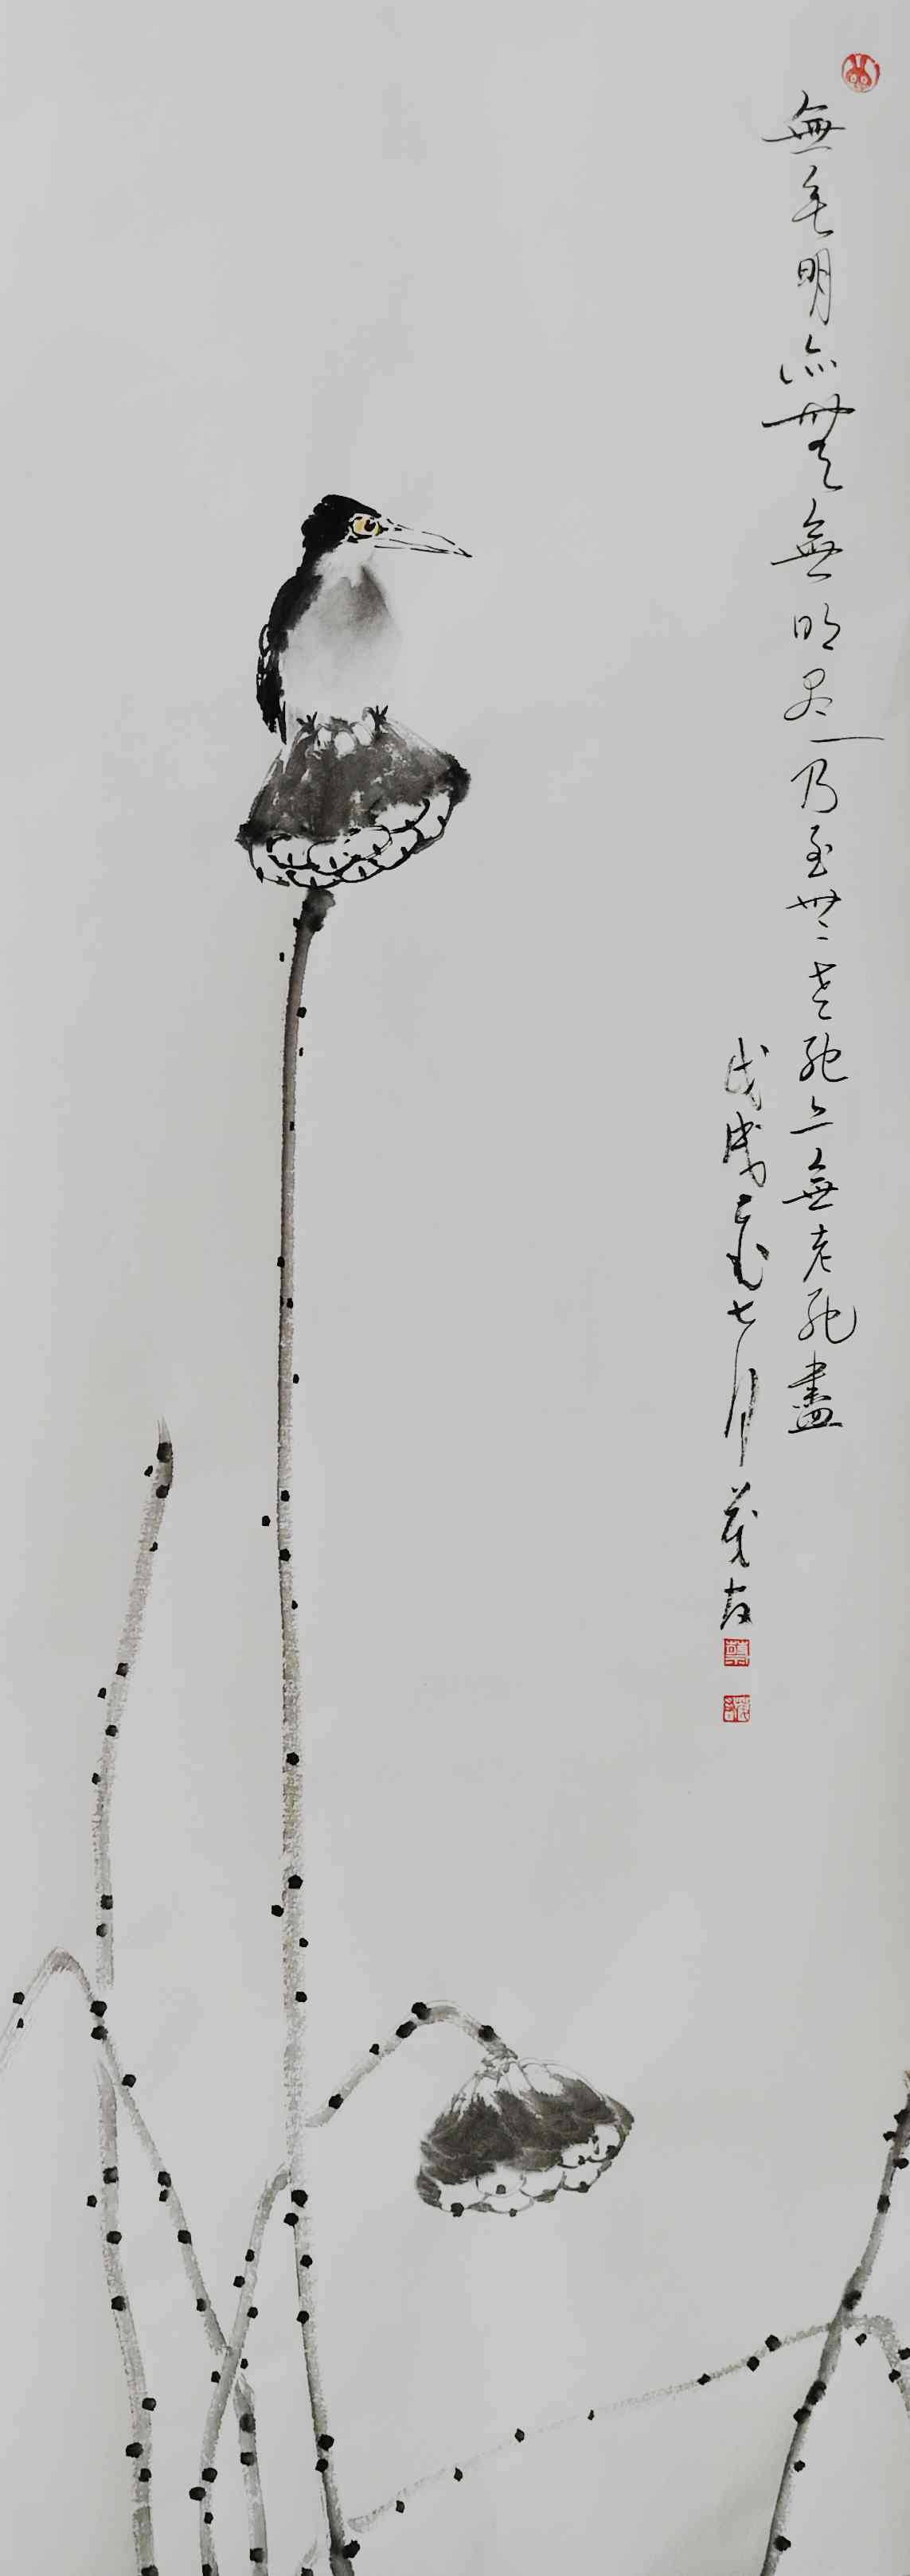 無无明亦無無明尽乃至無老死亦無老死盡
戊戌七月